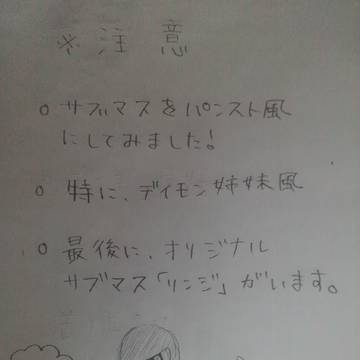 ※注意
○ サブマスをパンスト風
にしてみました!
○ 特に、デイモン姉妹風
○ 最後に、オリジナル
サブマス「リンジ」がいます。